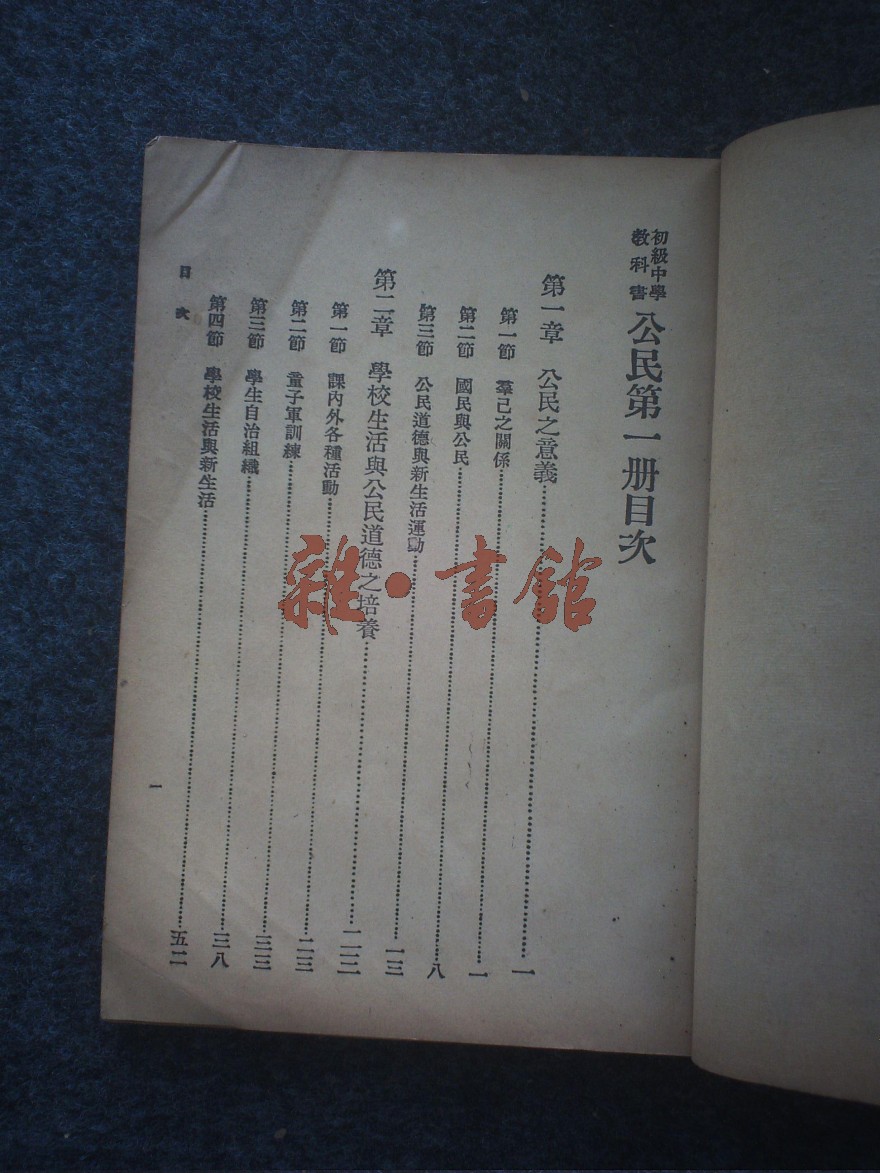 初級中學
教科書
公民第一册目次
第一章 公民之意義……一
第一節 羣己之關係……一
第二節 國民與公民……八
第三節 公民道德與新生活運動……一三
第二章 學校生活與公民道德之培養……
第一節 課內外各種活動……二三
第二節 童子軍訓練……三三
第三節 學生自治組織……三八
第四節 學校生活與新生活……五二
目次
一
雜·書館